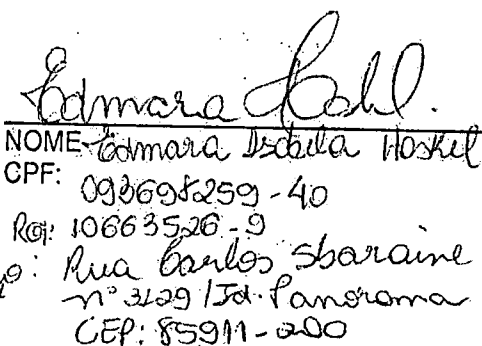 Edmara
NOME Edmara Isabela Hoskel
CPF: 093698259-40
RG: 10663526-9
Rua Carlos Sbaraine
nº 3129 / Jd. Panorama
CEP: 85911-200